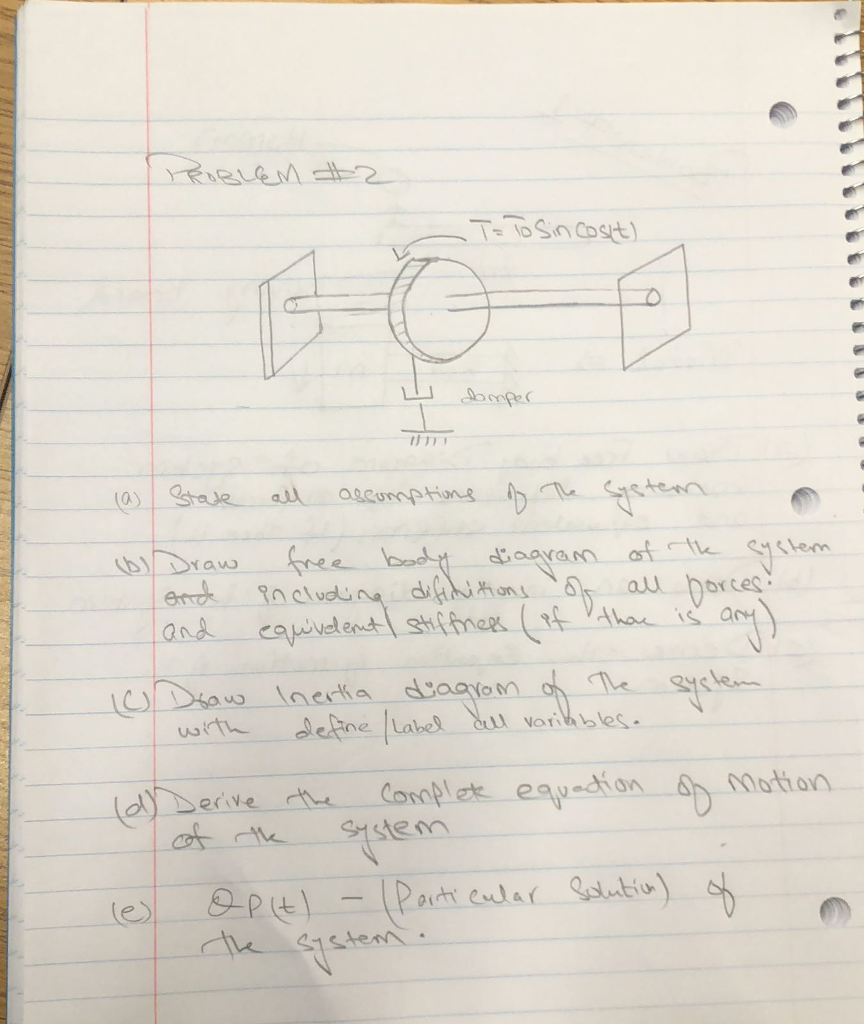 PROBLEM #2
T= To Sin cos(t)
damper
(a) State all assumptions of the system
(b) Draw free body diagram of the system
and including difinitions of all forces.
and equivdent stiffness (if thae is any)
(c) Draw Inertia diagram of The system
with define/Label all variables.
(d) Derive the Complete equation of Motion
of the system
(e) θp(t) - (Particular Solution) of
the system.